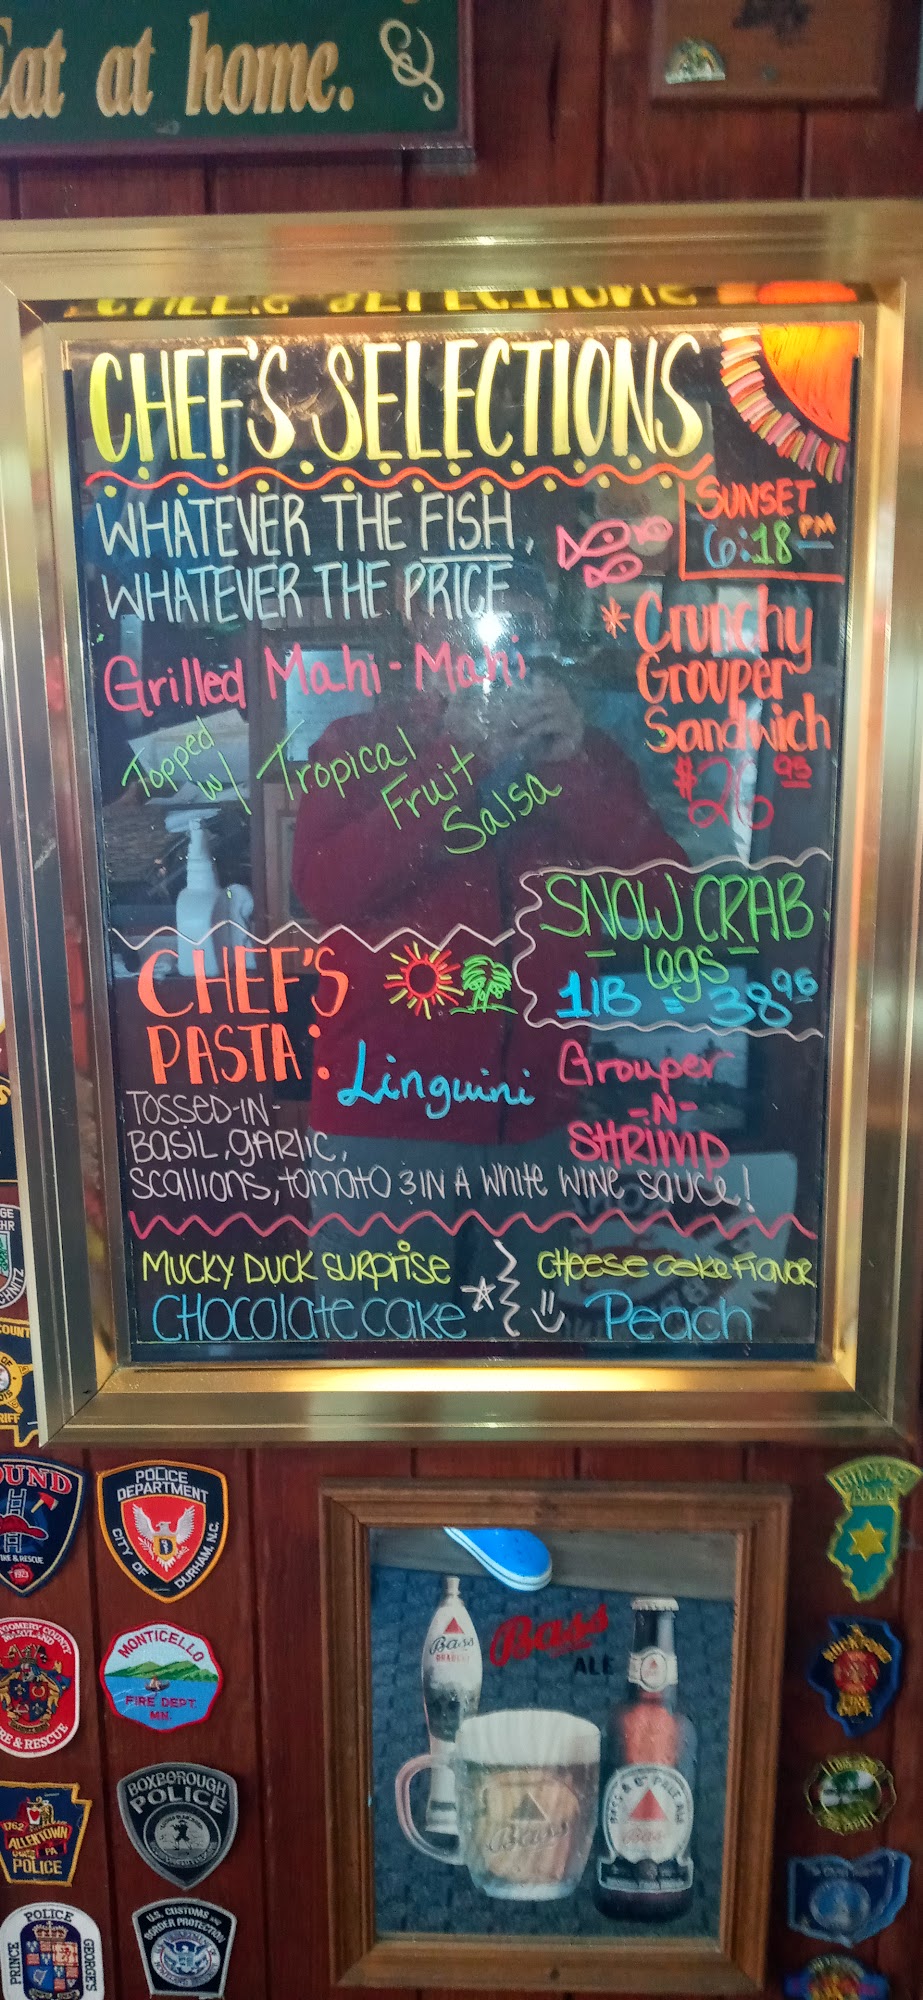 Eat at home.
CHEF'S SELECTIONS
WHATEVER THE FISH,
WHATEVER THE PRICE
SUNSET
6:18 PM
Grilled Mahi-Mahi
Topped
w/ Tropical
Fruit
Salsa
*Crunchy
Grouper
Sandwich
$26 95
SNOW CRAB
- legs -
1lB = 38 95
CHEF'S
PASTA:
Linguini
Grouper
-N-
SHRIMP
TOSSED-IN-
BASIL, GARLIC,
Scallions, tomato & IN A WHITE WINE SAUCE!
MUCKY DUCK SURPRISE
CHOCOLATE CAKE
CHEESE CAKE FLAVOR
Peach
POLICE
DEPARTMENT
CITY OF DURHAM, N.C.
FIRE & RESCUE
1923
MONTGOMERY COUNTY
MARYLAND
FIRE & RESCUE
MONTICELLO
FIRE DEPT.
MN.
1762
ALLENTOWN
PA
POLICE
BOXBOROUGH
POLICE
POLICE
PRINCE GEORGE'S
U.S. CUSTOMS AND
BORDER PROTECTION
Bass
Bass
ALE
Bass
Bass